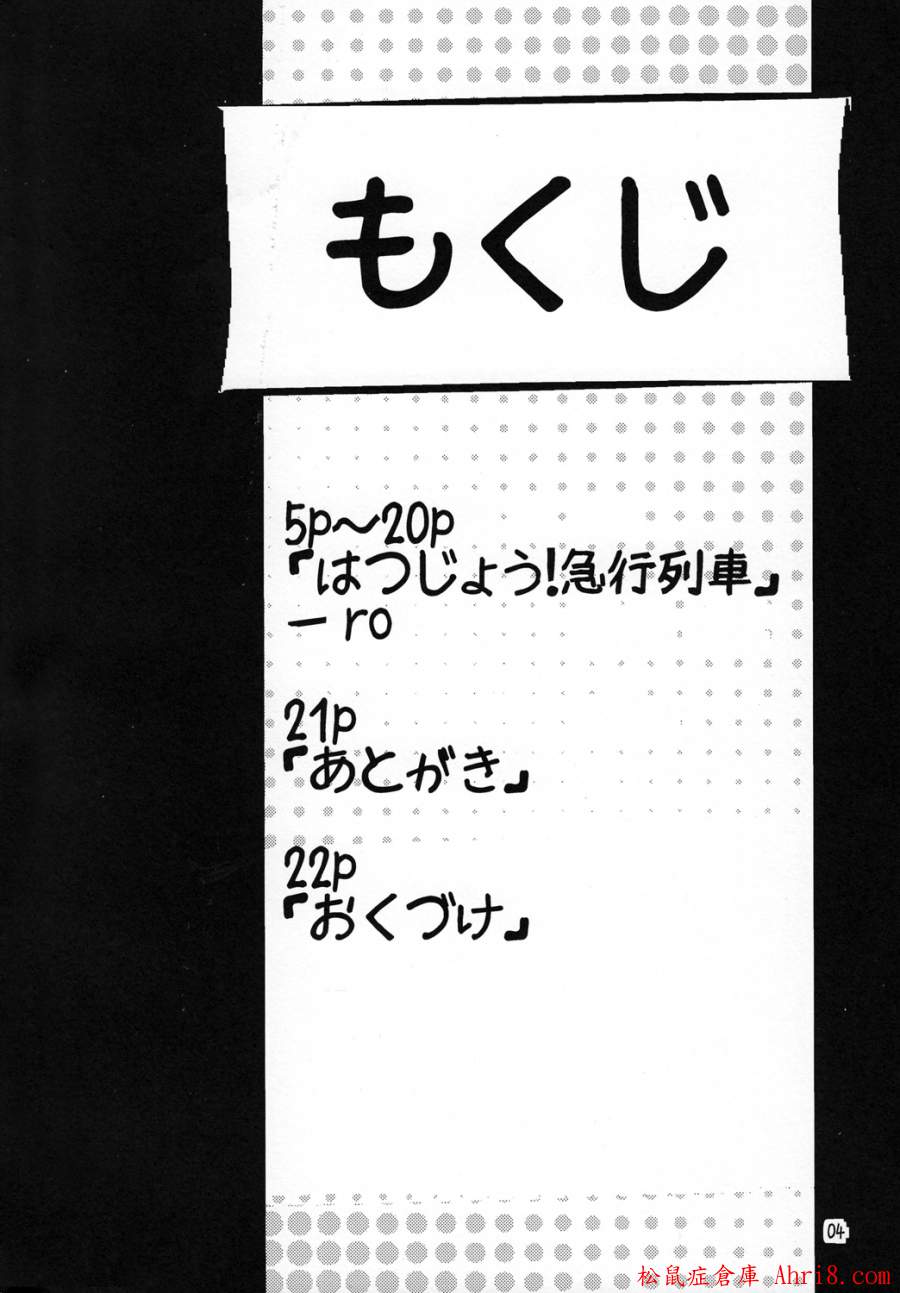 もくじ
5p～20p
『はつじょう!急行列車』
ー ro
21p
『あとがき』
22p
『おくづけ』
04
松鼠症倉庫 Ahri8.com